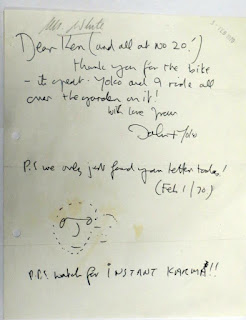 Dear Ken (and all at No 20!)
thank you for the bike
- its great. Yoko and I ride all
over the garden on it!
with love from
John + Yoko
P.S we only just found your letter today!
(Feb 1/70)
P.P.S. watch for INSTANT KARMA!!